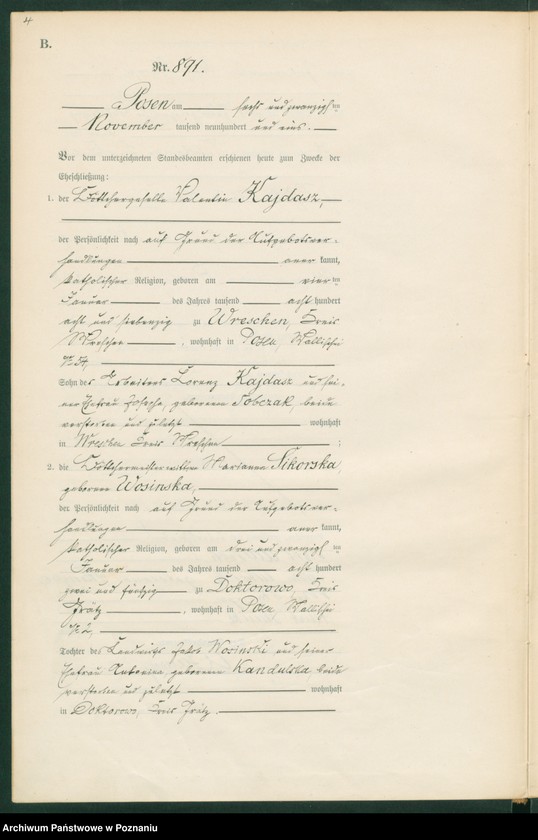 4
B.
Nr. 891.
Posen am sechs und zwanzigsten
November tausend neunhundert und eins.
Vor dem unterzeichneten Standesbeamten erschienen heute zum Zwecke der
Eheschließung:
1. der Böttchergeselle Valentin Kajdasz,
der Persönlichkeit nach auf Grund der Aufgebotsver-
handlungen anerkannt,
katholischer Religion, geboren am vierten
Januar des Jahres tausend acht hundert
acht und siebenzig zu Wreschen, Kreis
Wreschen, wohnhaft in Posen, Wallischei
54,
Sohn des Arbeiters Lorenz Kajdasz und sei-
ner Ehefrau Josepha, geborenen Tobczak, beide
verstorben und zuletzt wohnhaft
in Wreschen Kreis Wreschen;
2. die Böttchermeisterwittwe Marianna Sikorska,
geborene Wosinska,
der Persönlichkeit nach auf Grund der Aufgebotsver-
handlungen anerkannt,
katholischer Religion, geboren am drei und zwanzigsten
Januar des Jahres tausend acht hundert
zwei und fünfzig zu Doktorowo, Kreis
Grätz, wohnhaft in Posen, Wallischei
Tochter des Landwirths Jakob Wosinski und seiner
Ehefrau Antonina geborenen Kandulska beide
verstorben und zuletzt wohnhaft
in Doktorowo, Kreis Grätz.
Archiwum Państwowe w Poznaniu